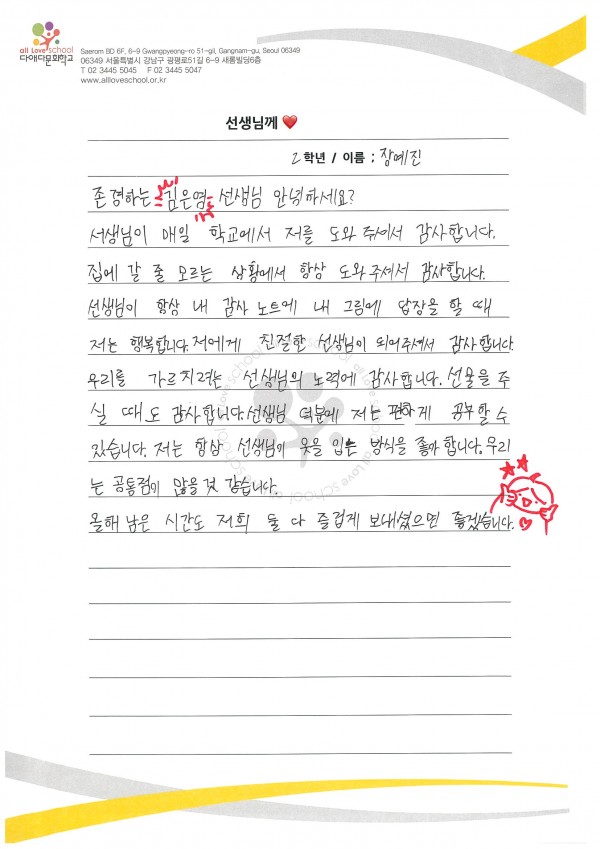 all Love school
다애다문화학교
Saerom BD 6F, 6-9 Gwangpyeong-ro 51-gil, Gangnam-gu, Seoul 06349
06349 서울특별시 강남구 광평로51길 6-9 새롬빌딩6층
T 02 3445 5045 F 02 3445 5047
www.allloveschool.or.kr
선생님께 ❤
2 학년 / 이름 ; 장예진
존경하는 김은영 선생님 안녕하세요?
서생님이 매일 학교에서 저를 도와 주셔서 감사합니다.
집에 갈 줄 모르는 상황에서 항상 도와주셔서 감사합니다.
선생님이 항상 내 감사 노트에 내 그림에 답장을 할 때
저는 행복합니다. 저에게 친절한 선생님이 되어주셔서 감사합니다.
우리를 가르치려는 선생님의 노력에 감사합니다. 선물을 주
실 때도 감사합니다. 선생님 덕분에 저는 편하게 공부할 수
있습니다. 저는 항상 선생님의 옷을 입는 방식을 좋아합니다. 우리
는 공통점이 많을 것 같습니다.
올해 남은 시간도 저희 둘 다 즐겁게 보내셨으면 좋겠습니다.
all Love school